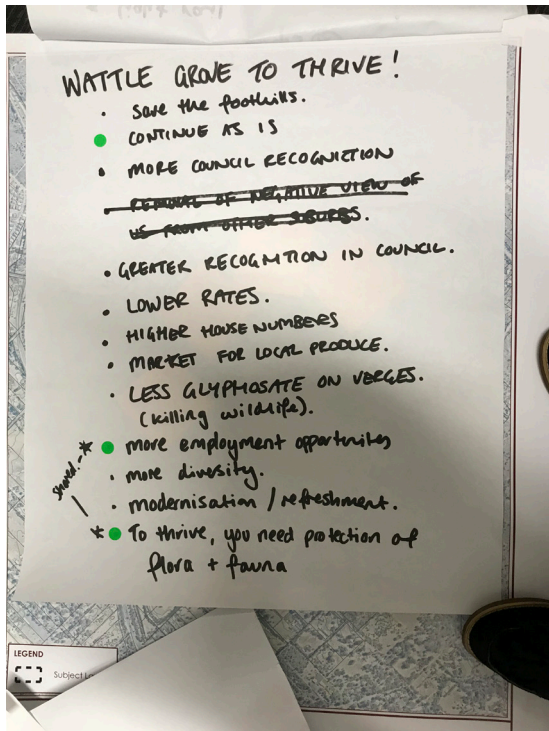 WATTLE GROVE TO THRIVE!
• Save the foothills.
CONTINUE AS IS
• MORE COUNCIL RECOGNICTION
• REMOVAL OF NEGATIVE VIEW OF
US FROM OTHER SUBURBS.
• GREATER RECOGNITION IN COUNCIL.
• LOWER RATES.
• HIGHER HOUSE NUMBERS
• MARKET FOR LOCAL PRODUCE.
• LESS GLYPHOSATE ON VERGES.
(killing wildlife).
* more employment opportunites
• more diversity.
shared.
• modernisation / refreshment.
* To thrive, you need protection of
flora + fauna
LEGEND
Subject